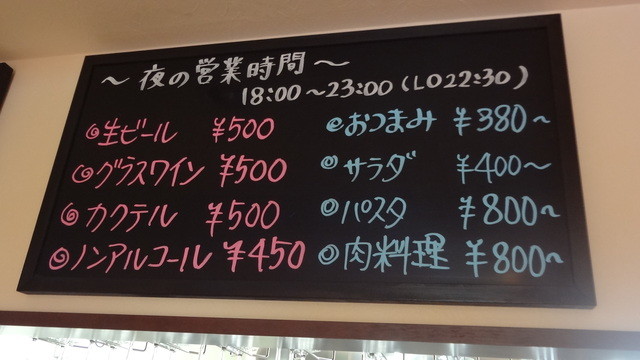 ～ 夜の営業時間 ～
18:00～23:00(LO22:30)
◎生ビール ¥500
◎グラスワイン ¥500
◎カクテル ¥500
◎ノンアルコール ¥450
◎おつまみ ¥380～
◎サラダ ¥400～
◎パスタ ¥800～
◎肉料理 ¥800～